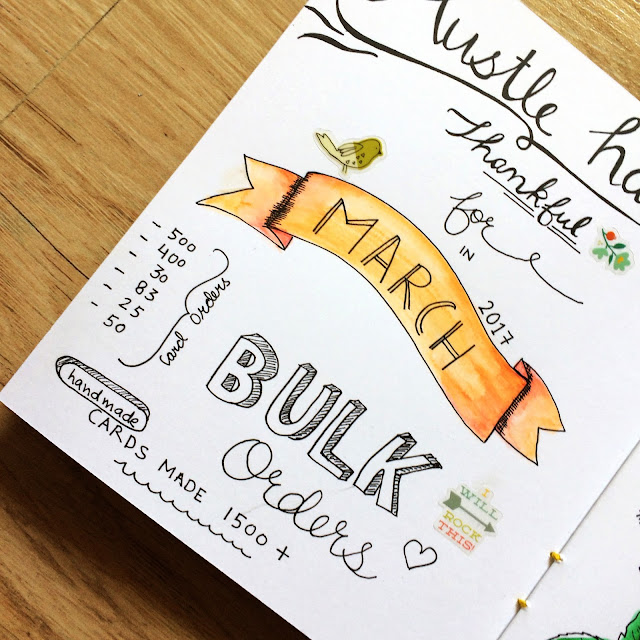 Hustle ha
Thankful
for
IN
MARCH
2017
- 500
- 400
- 30
- 83
- 25
- 50
Card Orders
BULK
Orders
handmade
CARDS MADE 1500+
I
WILL
ROCK
THIS!